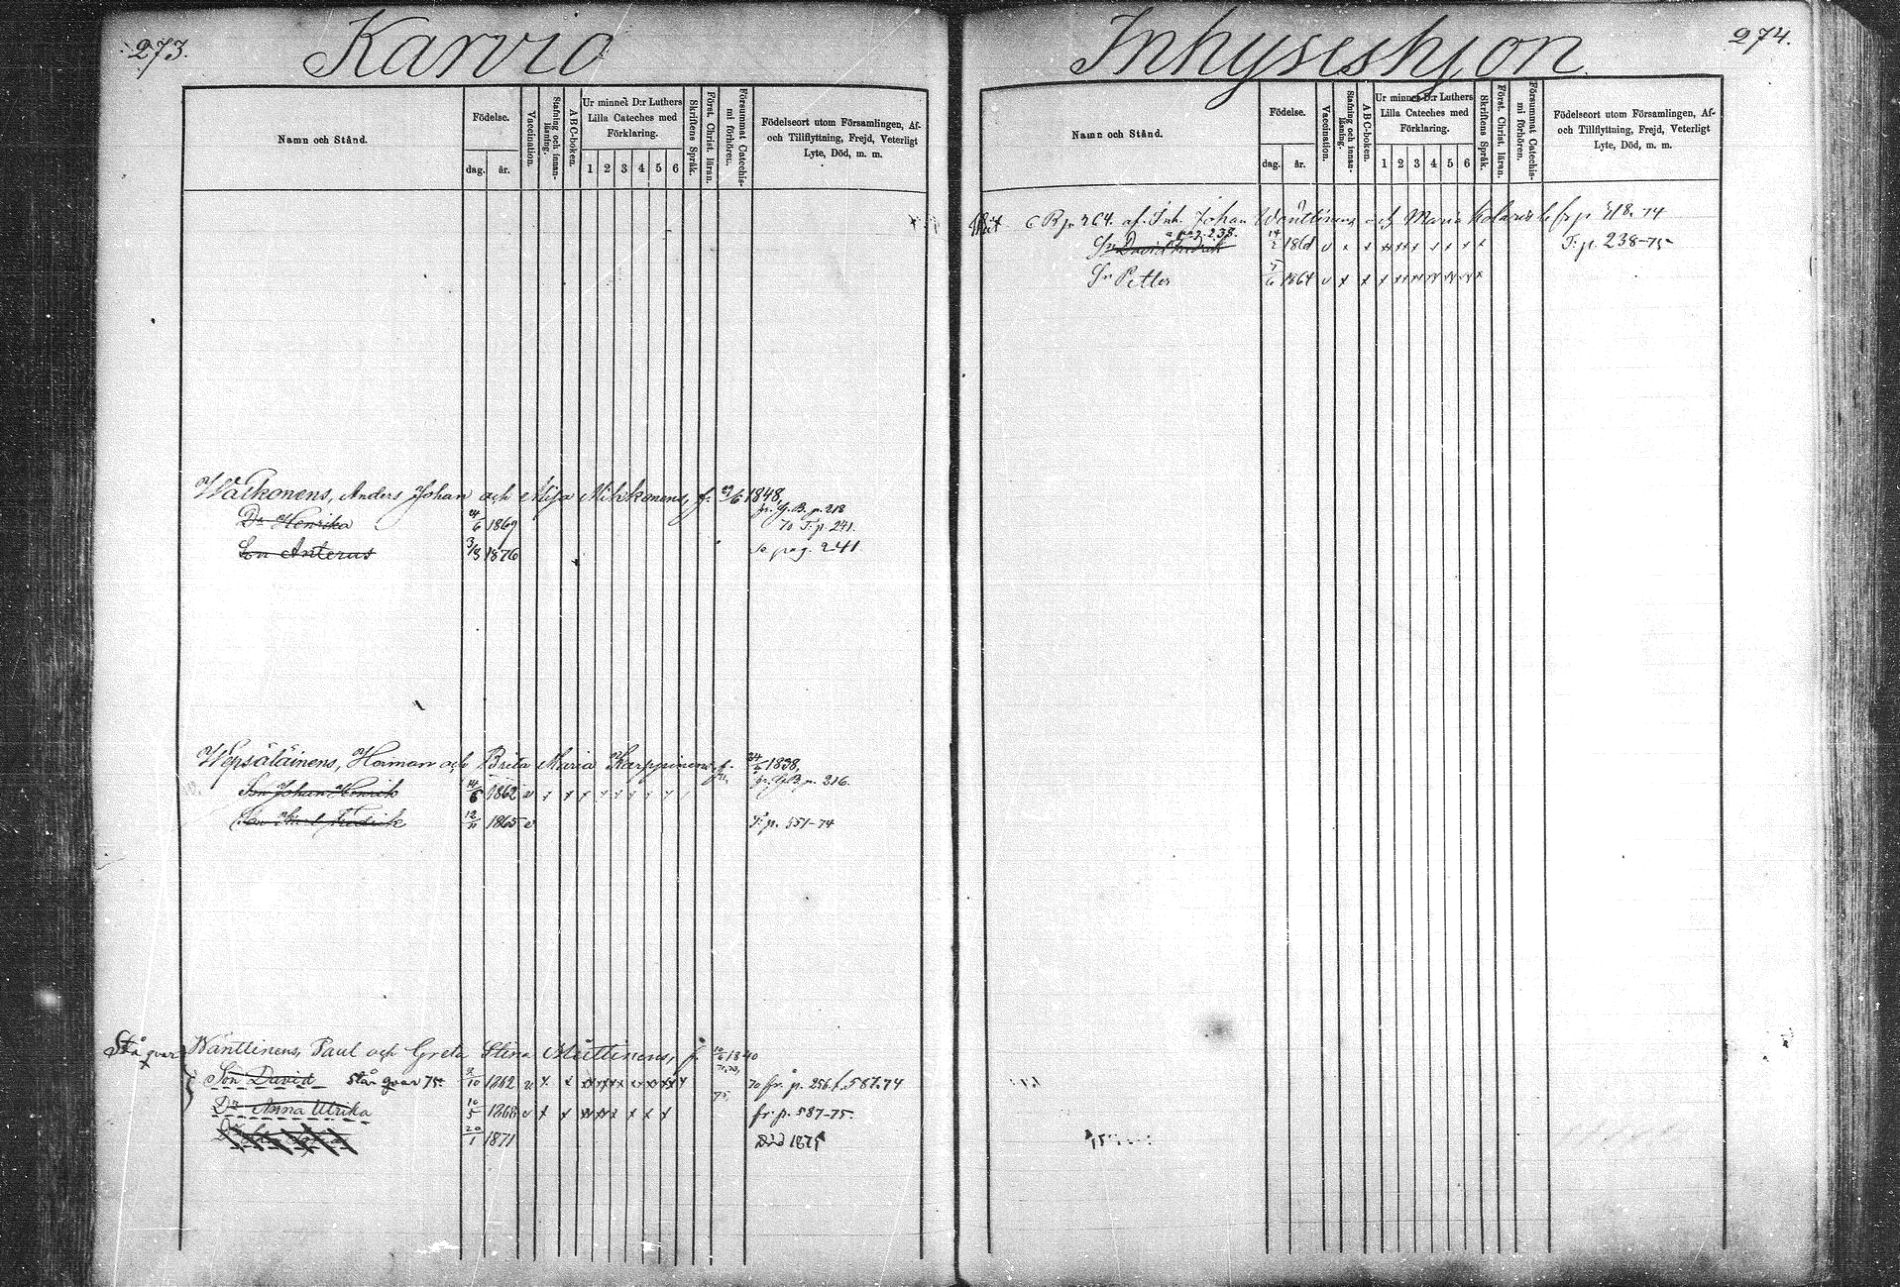 273.
Karvio
Namn och Stånd.
Födelse.
dag.
år.
Vaccination.
Stafning och innan-
läsning.
ABC-boken.
Ur minnet D:r Luthers
Lilla Cateches med
Förklaring.
1 2 3 4 5 6
Skriftens Språk.
Först. Christ. läran.
Försummat Catechis-
mi förhören.
Födelseort utom Församlingen, Af-
och Tillflyttning, Frejd, Veterligt
Lyte, Död, m. m.
Anders Johan och Mikkonens, f. 1848,
Dr Henrika 1869 fr. G.B. p. 218
70 T. p. 241.
Son Anterus 3/3 1876 pag. 241
Wepsäläinens, Herman och Brita Maria Karppinens f. 1838,
Son Johan Henrik 1862 v fr. G.B. p. 316.
Son Karl Fredrik 12/11 1865 v T. p. 551-74
Stå qvar Wänttinens, Paul och Greta Stina f. 1840
Son David står qvar 75. 1862 fr. p. 587.74
Dr Anna Ulrika 10/5 1868 v fr. p. 587-75.
20/1 1871 Död 1875
Inhyseshjon
274.
Namn och Stånd.
Födelse.
dag.
år.
Vaccination.
Stafning och innan-
läsning.
ABC-boken.
Ur minnet D:r Luthers
Lilla Cateches med
Förklaring.
1 2 3 4 5 6
Skriftens Språk.
Först. Christ. läran.
Försummat Catechis-
mi förhören.
Födelseort utom Församlingen, Af-
och Tillflyttning, Frejd, Veterligt
Lyte, Död, m. m.
af Inh. Johan Wänttinens och Maria fr p. 74
pag. 238.
Sr David Fredrik 1861 v T. p. 238-75
Sr Petter 1864 v